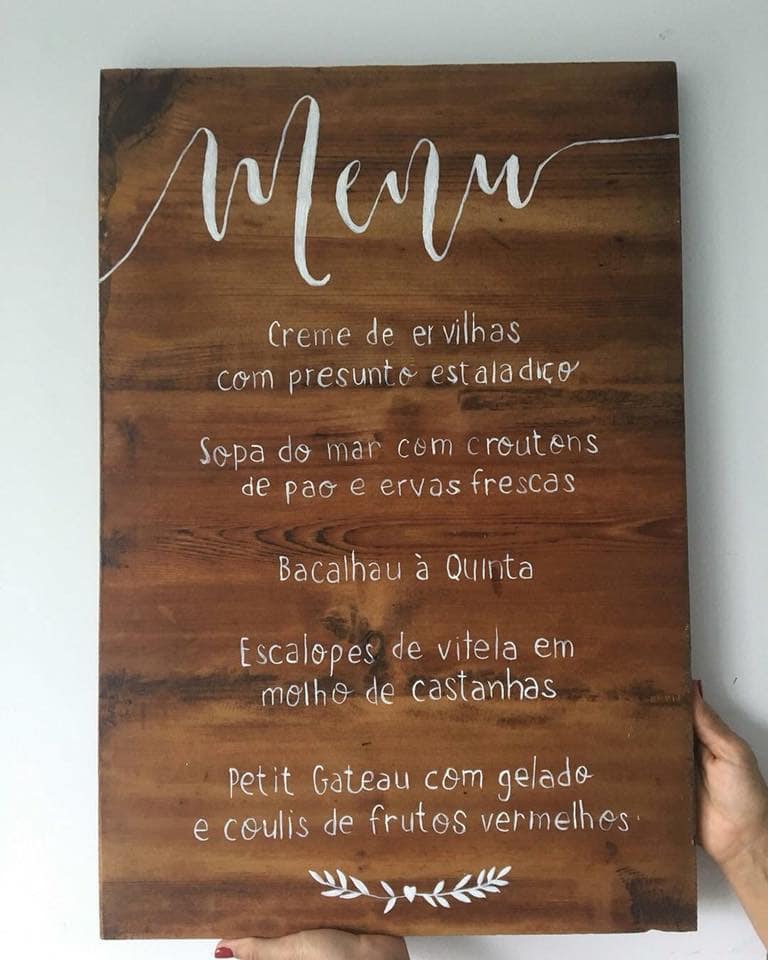 Menu
Creme de ervilhas
com presunto estaladiço
Sopa do mar com croutons
de pao e ervas frescas
Bacalhau à Quinta
Escalopes de vitela em
molho de castanhas
Petit Gateau com gelado
e coulis de frutos vermelhos